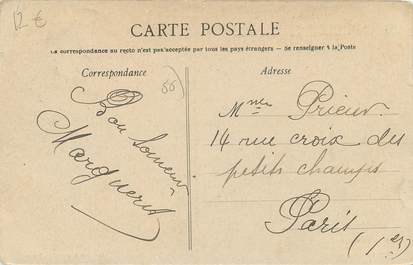 12 €
CARTE POSTALE
La correspondance au recto n'est pas acceptée par tous les pays étrangers - Se renseigner à la Poste
Correspondance
Adresse
86
Bon Souvenir
Marguerite
Mme Prieur.
14 rue croix des
petits champs
Paris
(1er)